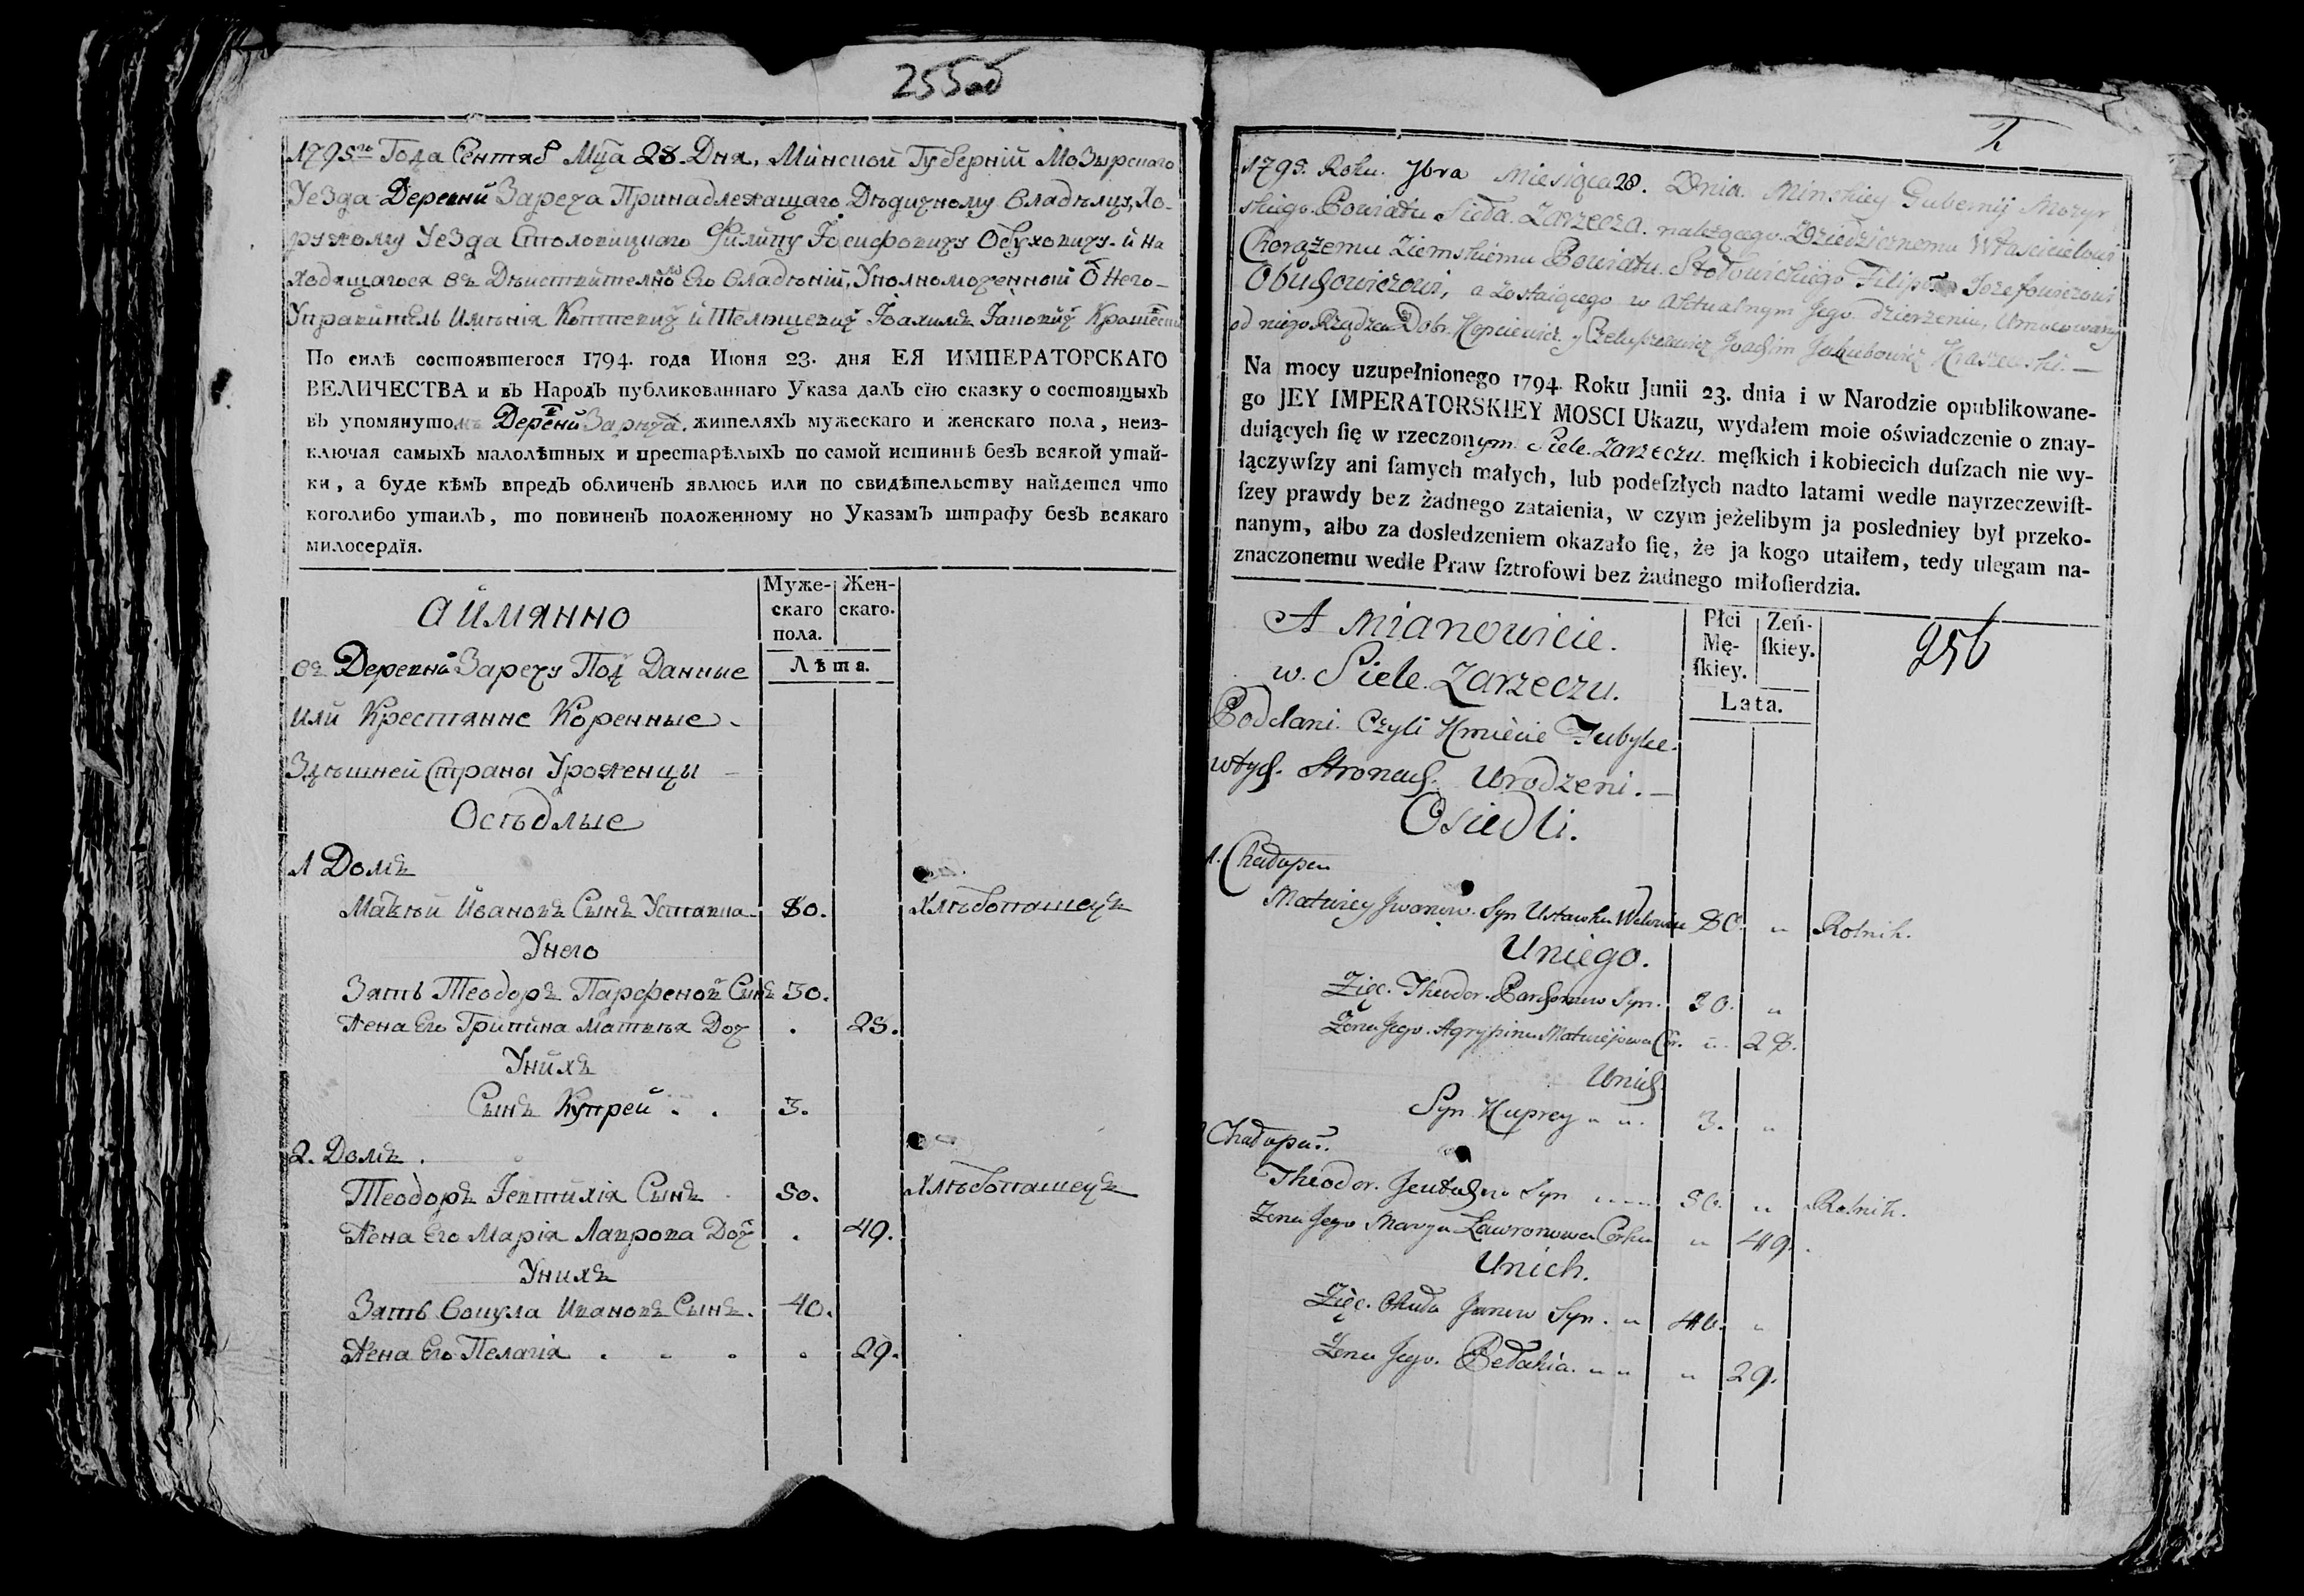 255об
1795го Года Сентяб Мца 28 Дня, Минской Губерній Мозырскаго
Уезда Деревни Зареча Принадлежащаго Дѣдичному Владѣлцу, Хо-
ружому Уезда Столовицкаго Филипу Іосифовичу Обуховичу. и На
ходящагося въ Дѣиствителномъ Его Владѣніи, Уполномоченный От Него
Управитель Имѣнія Копцевич и Шелющевич Іоахимъ
По силѣ состоявшегося 1794. года Июня 23. дня ЕЯ ИМПЕРАТОРСКАГО
ВЕЛИЧЕСТВА и въ Народъ публикованнаго Указа далъ сїю сказку о состоящыхъ
въ упомянутомъ Деревни Зареча. жителяхъ мужескаго и женскаго пола, неиз-
ключая самыхъ малолѣтныхъ и престарѣлыхъ по самой истиннѣ безъ всякой утай-
ки, а буде кѣмъ впредъ обличенъ явлюсь или по свидѣтельству найдется что
коголибо утаилъ, то повиненъ положенному по Указамъ штрафу безъ всякаго
милосердїя.
Муже-скаго пола. Жен-скаго.
Лѣта.
А ймянно
въ Деревни Заречу Под Данные
или Крестянне Коренные
Здѣшней Страны Уроженцы
Осѣдлые
1 Домъ
Матвѣй Ивановъ Сынъ Уставна 80. Хлѣбопашецъ
У него
Зять Теодоръ Парфенов Сынъ 30.
Жена Его Грипина Матвѣя Доч . 28.
У нихъ
Сынъ Купрей . . 3.
2. Домъ.
Теодоръ Іевтихія Сынъ 50. Хлѣбопашецъ
Жена Его Марія Лаврова Доч . 49.
У нихъ
Зять Вокула Ивановъ Сынъ. 40.
Жена Его Пелагія . . . . 29.
1795. Roku. 7bra Miesiąca 28. Dnia. Minskiey Gubernij Mozyr
skiego Powiatu Sieła. Zarzecza. należącego. Dziedzicznemu Właścicielowi
Chorążemu Ziemskiemu Powiatu. Stołowickiego Filipowi Jozefowiczowi
Obuchowiczowi, a zostaiącego w Aktualnym Jego dzierżeniu, Umocowany
od niego Rządzca Dobr. Kopciewicz y Joachim Jakubowicz Kraszewski. —
Na mocy uzupełnionego 1794. Roku Junii 23. dnia i w Narodzie opublikowane-
go JEY IMPERATORSKIEY MOSCI Ukazu, wydałem moie oświadczenie o znay-
duiących ſię w rzeczonym. Siele. Zarzeczu. męſkich i kobiecich duſzach nie wy-
łączywſzy ani ſamych małych, lub podeſzłych nadto latami wedle nayrzeczewiſt-
ſzey prawdy bez żadnego zataienia, w czym jeżelibym ja posledniey był przeko-
nanym, albo za dosledzeniem okazało ſię, że ja kogo utaiłem, tedy ulegam na-
znaczonemu wedle Praw ſztrofowi bez żadnego miłoſierdzia.
Płci Mę-ſkiey. Zeń-ſkiey.
Lata.
256
A mianowicie.
w. Siele. Zarzeczu.
Poddani. Czyli Kmiecie
w tych. Stronach. Urodzeni. —
Osiedli.
1. Chałupa
Matwiey Jwanow. Syn Ustawka 80. „ Rolnik.
U niego.
Zięć. Theodor. Syn. 30. „
Żona Jego. Agrypina Matwiejowa Cor. „ 28.
U nich
Syn Kuprey „ „ 3. „
Chałupa.
Theodor. Syn 50. „ Rolnik.
Żona Jego Marya Ławronowa Corka „ 49.
U nich.
Zięć. Janow Syn. „ 40. „
Żona Jego. Pełahia. „ „ „ 29.